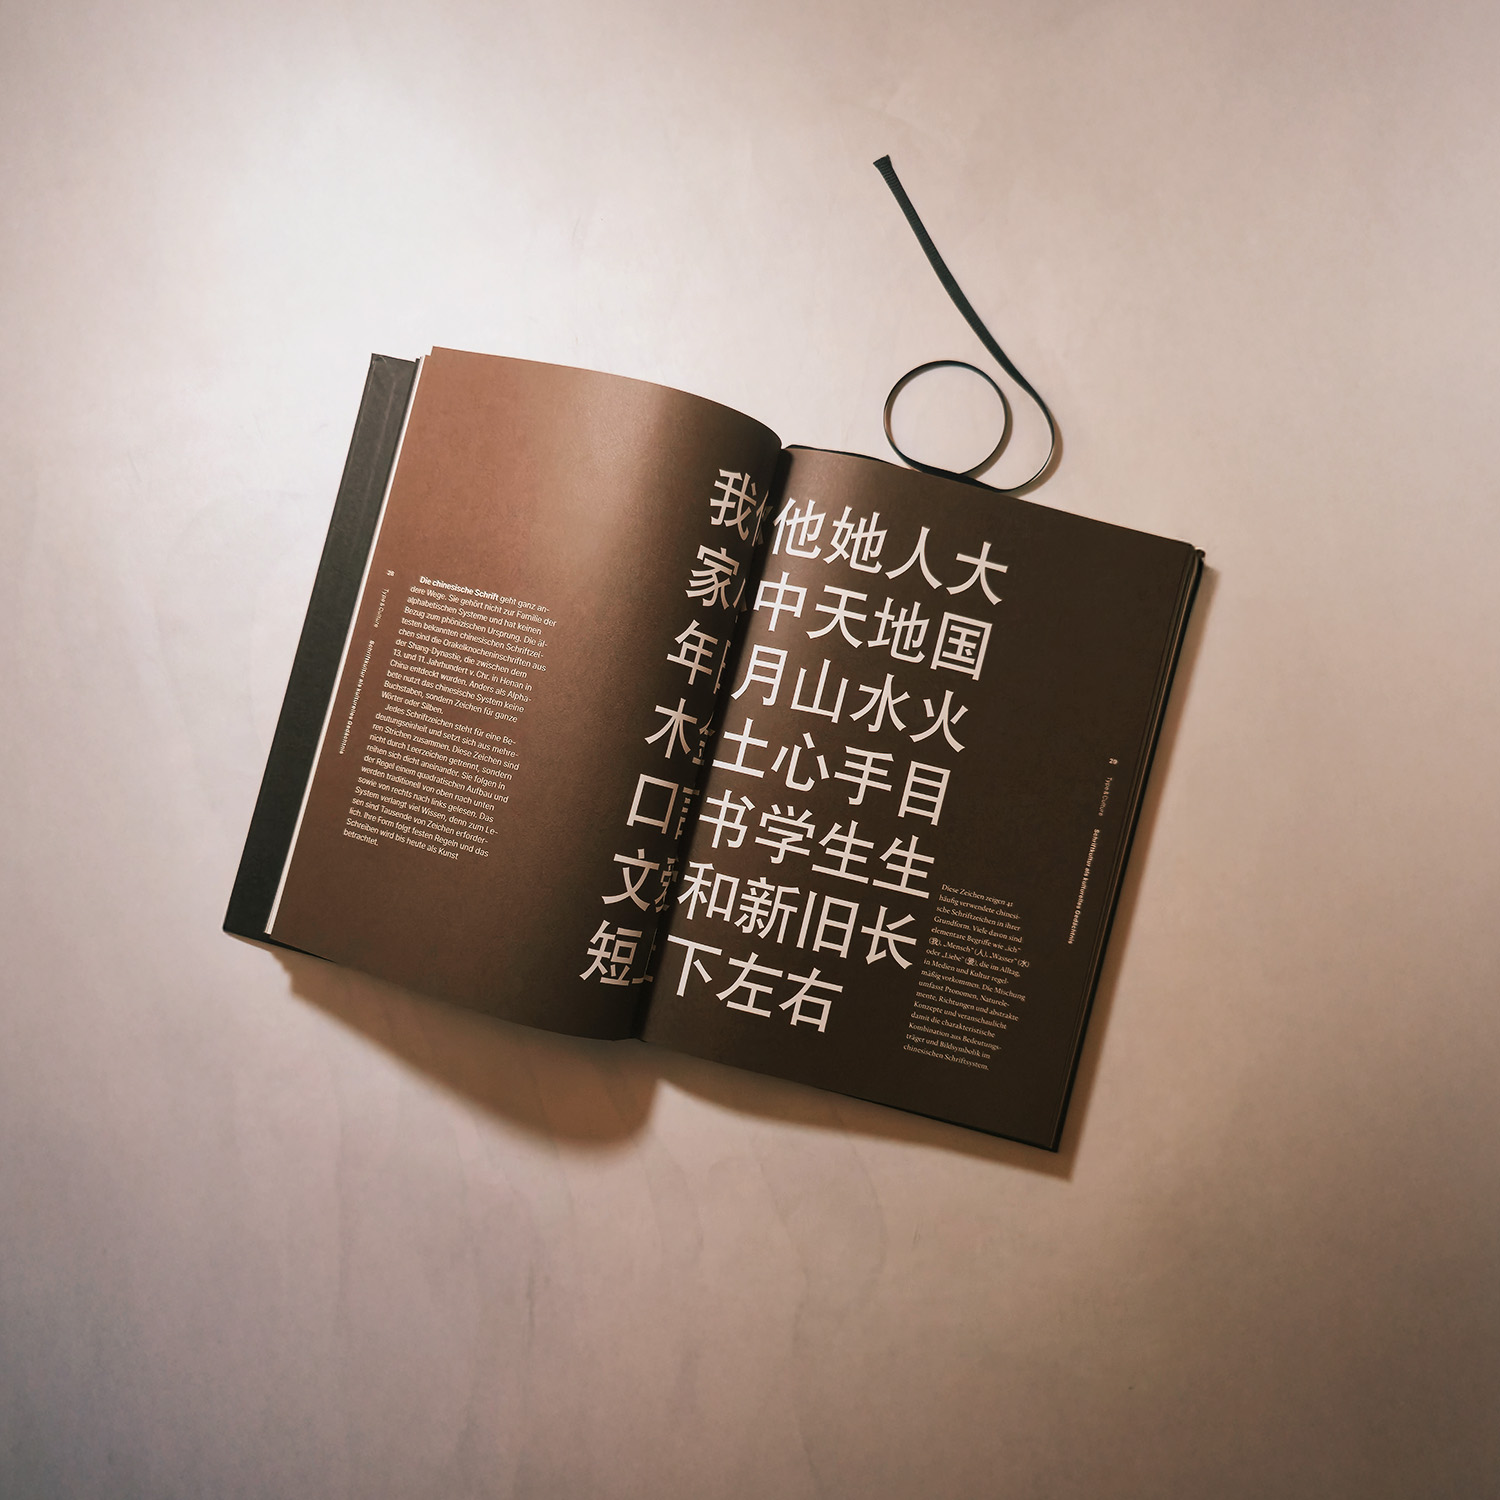 Type & Culture
Schriftkultur als kulturelles Gedächtnis
Die chinesische Schrift geht ganz an-
dere Wege. Sie gehört nicht zur Familie der
alphabetischen Systeme und hat keinen
Bezug zum phönizischen Ursprung. Die äl-
testen bekannten chinesischen Schriftzei-
chen sind die Orakelknocheninschriften aus
der Shang-Dynastie, die zwischen dem
13. und 11. Jahrhundert v. Chr. in Henan in
China entdeckt wurden. Anders als Alpha-
bete nutzt das chinesische System keine
Buchstaben, sondern Zeichen für ganze
Wörter oder Silben.
Jedes Schriftzeichen steht für eine Be-
deutungseinheit und setzt sich aus mehre-
ren Strichen zusammen. Diese Zeichen sind
nicht durch Leerzeichen getrennt, sondern
reihen sich dicht aneinander. Sie folgen in
der Regel einem quadratischen Aufbau und
werden traditionell von oben nach unten
sowie von rechts nach links gelesen. Das
System verlangt viel Wissen, denn zum Le-
sen sind Tausende von Zeichen erforder-
lich. Ihre Form folgt festen Regeln und das
Schreiben wird bis heute als Kunst
betrachtet.
我 他她人大
家 中天地国
年 月山水火
木 土心手目
口 书学生生
文 和新旧长
短 下左右
Diese Zeichen zeigen 41
häufig verwendete chinesi-
sche Schriftzeichen in ihrer
Grundform. Viele davon sind
elementare Begriffe wie „ich“
(我), „Mensch“ (人), „Wasser“ (水)
oder „Liebe“ (爱), die im Alltag,
in Medien und Kultur regel-
mäßig vorkommen. Die Mischung
umfasst Pronomen, Naturele-
mente, Richtungen und abstrakte
Konzepte und veranschaulicht
damit die charakteristische
Kombination aus Bedeutungs-
träger und Bildsymbolik im
chinesischen Schriftsystem.
Type & Culture
Schriftkultur als kulturelles Gedächtnis